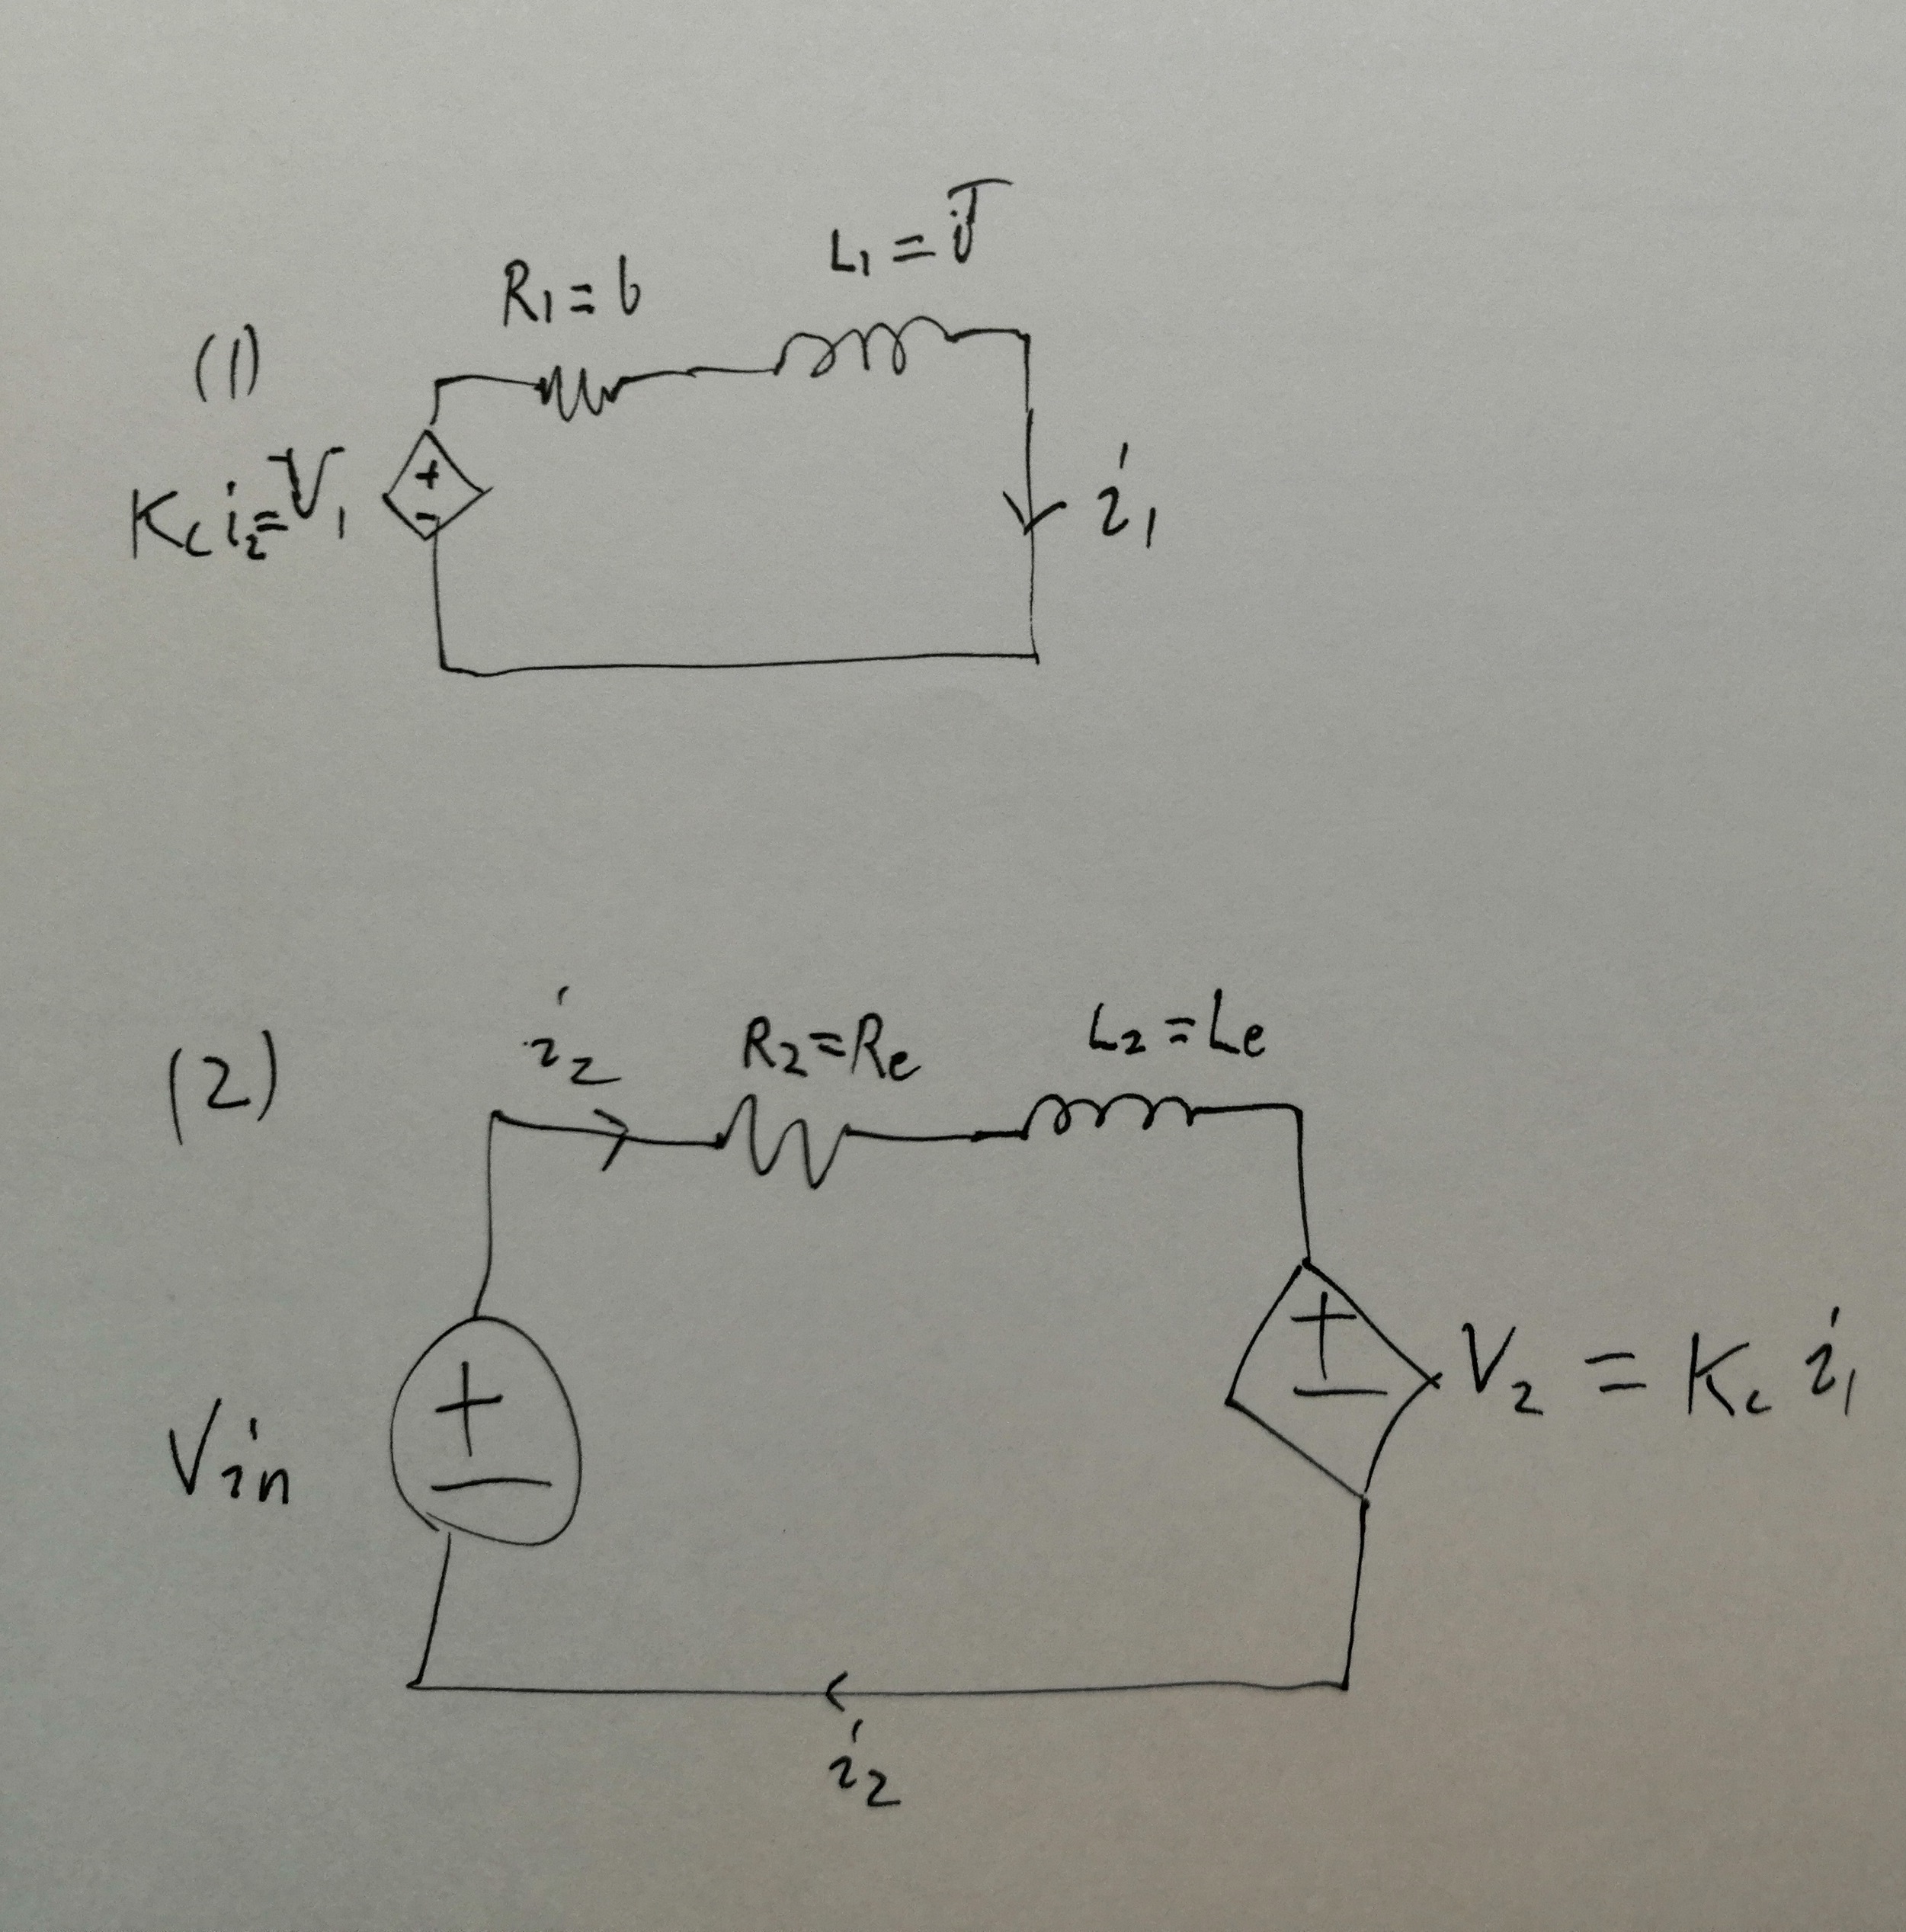 (1)
R1 = b
L1 = J
Kc i2 = V1
+
-
i1
(2)
i2
R2 = Re
L2 = Le
Vin
+
-
+
-
V2 = Kc i1
i2